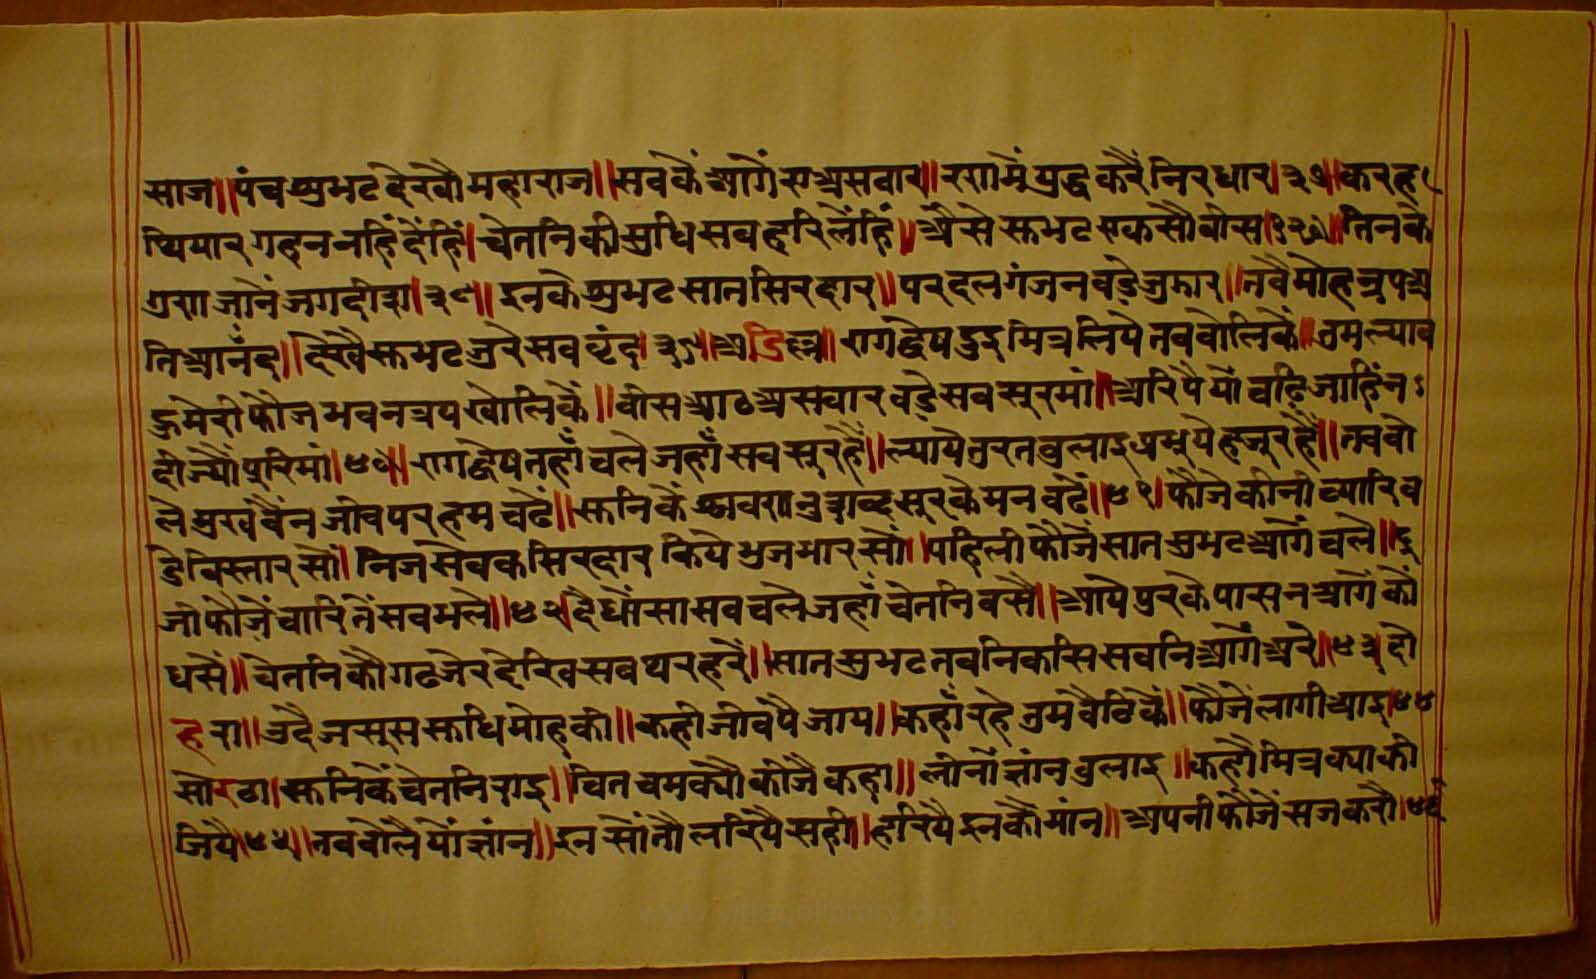 साज॥पंच सुभट देखौ महाराज॥सबकैं आगैं सप्त असवार॥रणमैं युद्ध करैं निरधार।३७॥करह
थियार गहन नहिं देंहिं।चेतनिकी सुधि सब हरि लेंहिं॥अैसे सुभट एकसौ वीस।३८॥तिनके
गुण जानें जगदीश।३९॥इनके सुभट सात सिरदार॥परदल गंजन बडे जुझार॥तबै मोह नृप अ
ति आनँद॥देखै सुभट जुरे सब वृंद।३९॥अडिल्ल॥राग द्वेष दुइ मित्र लिये तब बोलिकें॥तुम ल्याव
हु मेरी फौज भवन त्रय खोलिकें॥वीस आठ असवार बडे सब सूरमां॥अरिपै यों चढि जाहिं न
दी ज्यौं पुरिमां।४०॥राग द्वेष तहाँ चले जहाँ सब सूर हैं॥ल्याये तुरत बुलाइ प्रभूपे हजूर हैं॥तब बो
ले मुख बैंन जीव पर हम चढे॥सुनिकें श्रवण नु शब्द सूरके मन बढें॥४१।फौजै कीनी च्यारि ब
डे विस्तारसौं।निज सेवक सिरदार किये भुज भारसौं॥पहिली फौजें सात सुभट आगें चले॥दू
जी फौजें चारि तें सब भले॥४२।दै धौंसा सब चले जहाँ चेतनि बसै॥आये पुरके पास न आगें कों
धसें॥चेतनिकौ गढ जोर देखि सब थरहरें॥सात सुभट तब निकसि सबनि आगैं अरे॥४३।दो
हरा॥उदै जसूस सुधि मोहकी॥कही जीवपै जाय॥कहाँ रहे तुम बैठिकैं॥फौजें लागी आइ।४४
सोरठा।सुनिकें चेतनि राइ॥चित चमक्यौ कीजै कहा॥लीनों ज्ञांन बुलाइ॥कहौ मित्र क्या की
जियै।४५॥तब बोलै यों ज्ञांन॥इनसों तौ लरियै सही॥हरियै इनकौ मांन॥अपनी फौजें सज करौ।४६